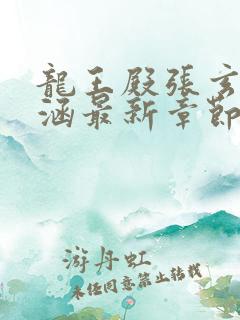 龍王殿張玄
涵最新章節
游丹虹
未經同意禁止轉載